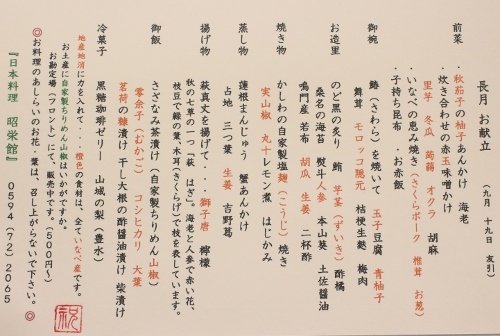 長月 お献立
(九月 十九日 友引)
前菜
・秋茄子の柚子あんかけ 海老
・炊き合わせの赤玉味噌かけ
里芋 冬瓜 蒟蒻 オクラ 胡麻
・いなべの恵み焼き(さくらポーク 椎茸 お葱)
・子持ち昆布 ・お赤飯
御椀
鰆(さわら)を焼いて 玉子豆腐 青柚子
舞茸 モロッコ隠元 桔梗生麩 梅肉
お造里
のど黒の炙り 鮪 芋茎(ずいき) 酢橘
桑名の海苔 熨斗人参 本山葵 土佐醤油
鳴門産 若布 胡瓜 生姜 二杯酢
焼き物
かしわの自家製塩麹(こうじ)焼き
実山椒 丸十レモン煮 はじかみ
蒸し物
蓮根まんじゅう 蟹あんかけ
占地 三つ葉 生姜 吉野葛
揚げ物
萩真丈を揚げて・・・獅子唐 檸檬
秋の七草の一つ「萩 はぎ」。海老と人参で赤い花、
枝豆で緑の葉、木耳(きくらげ)で枝を表しています。
御飯
さざなみ茶漬け(自家製ちりめん山椒)
零余子(むかご) コシヒカリ 大葉
茗荷の麹漬け 干し大根の酢醤油漬け 柴漬け
冷菓子
黒糖珈琲ゼリー 山城の梨(豊水)
地産地消に力を入れて・・・橙色の食材は、全ていなべ産です。
お土産に自家製ちりめん山椒はいかがですか。
お勘定場(フロント)にて、販売中です。(500円~)
◎お料理のあしらいのお花・葉は、召し上がらないで下さい。◎
『日本料理 昭栄館』 0594(72)2065
祝